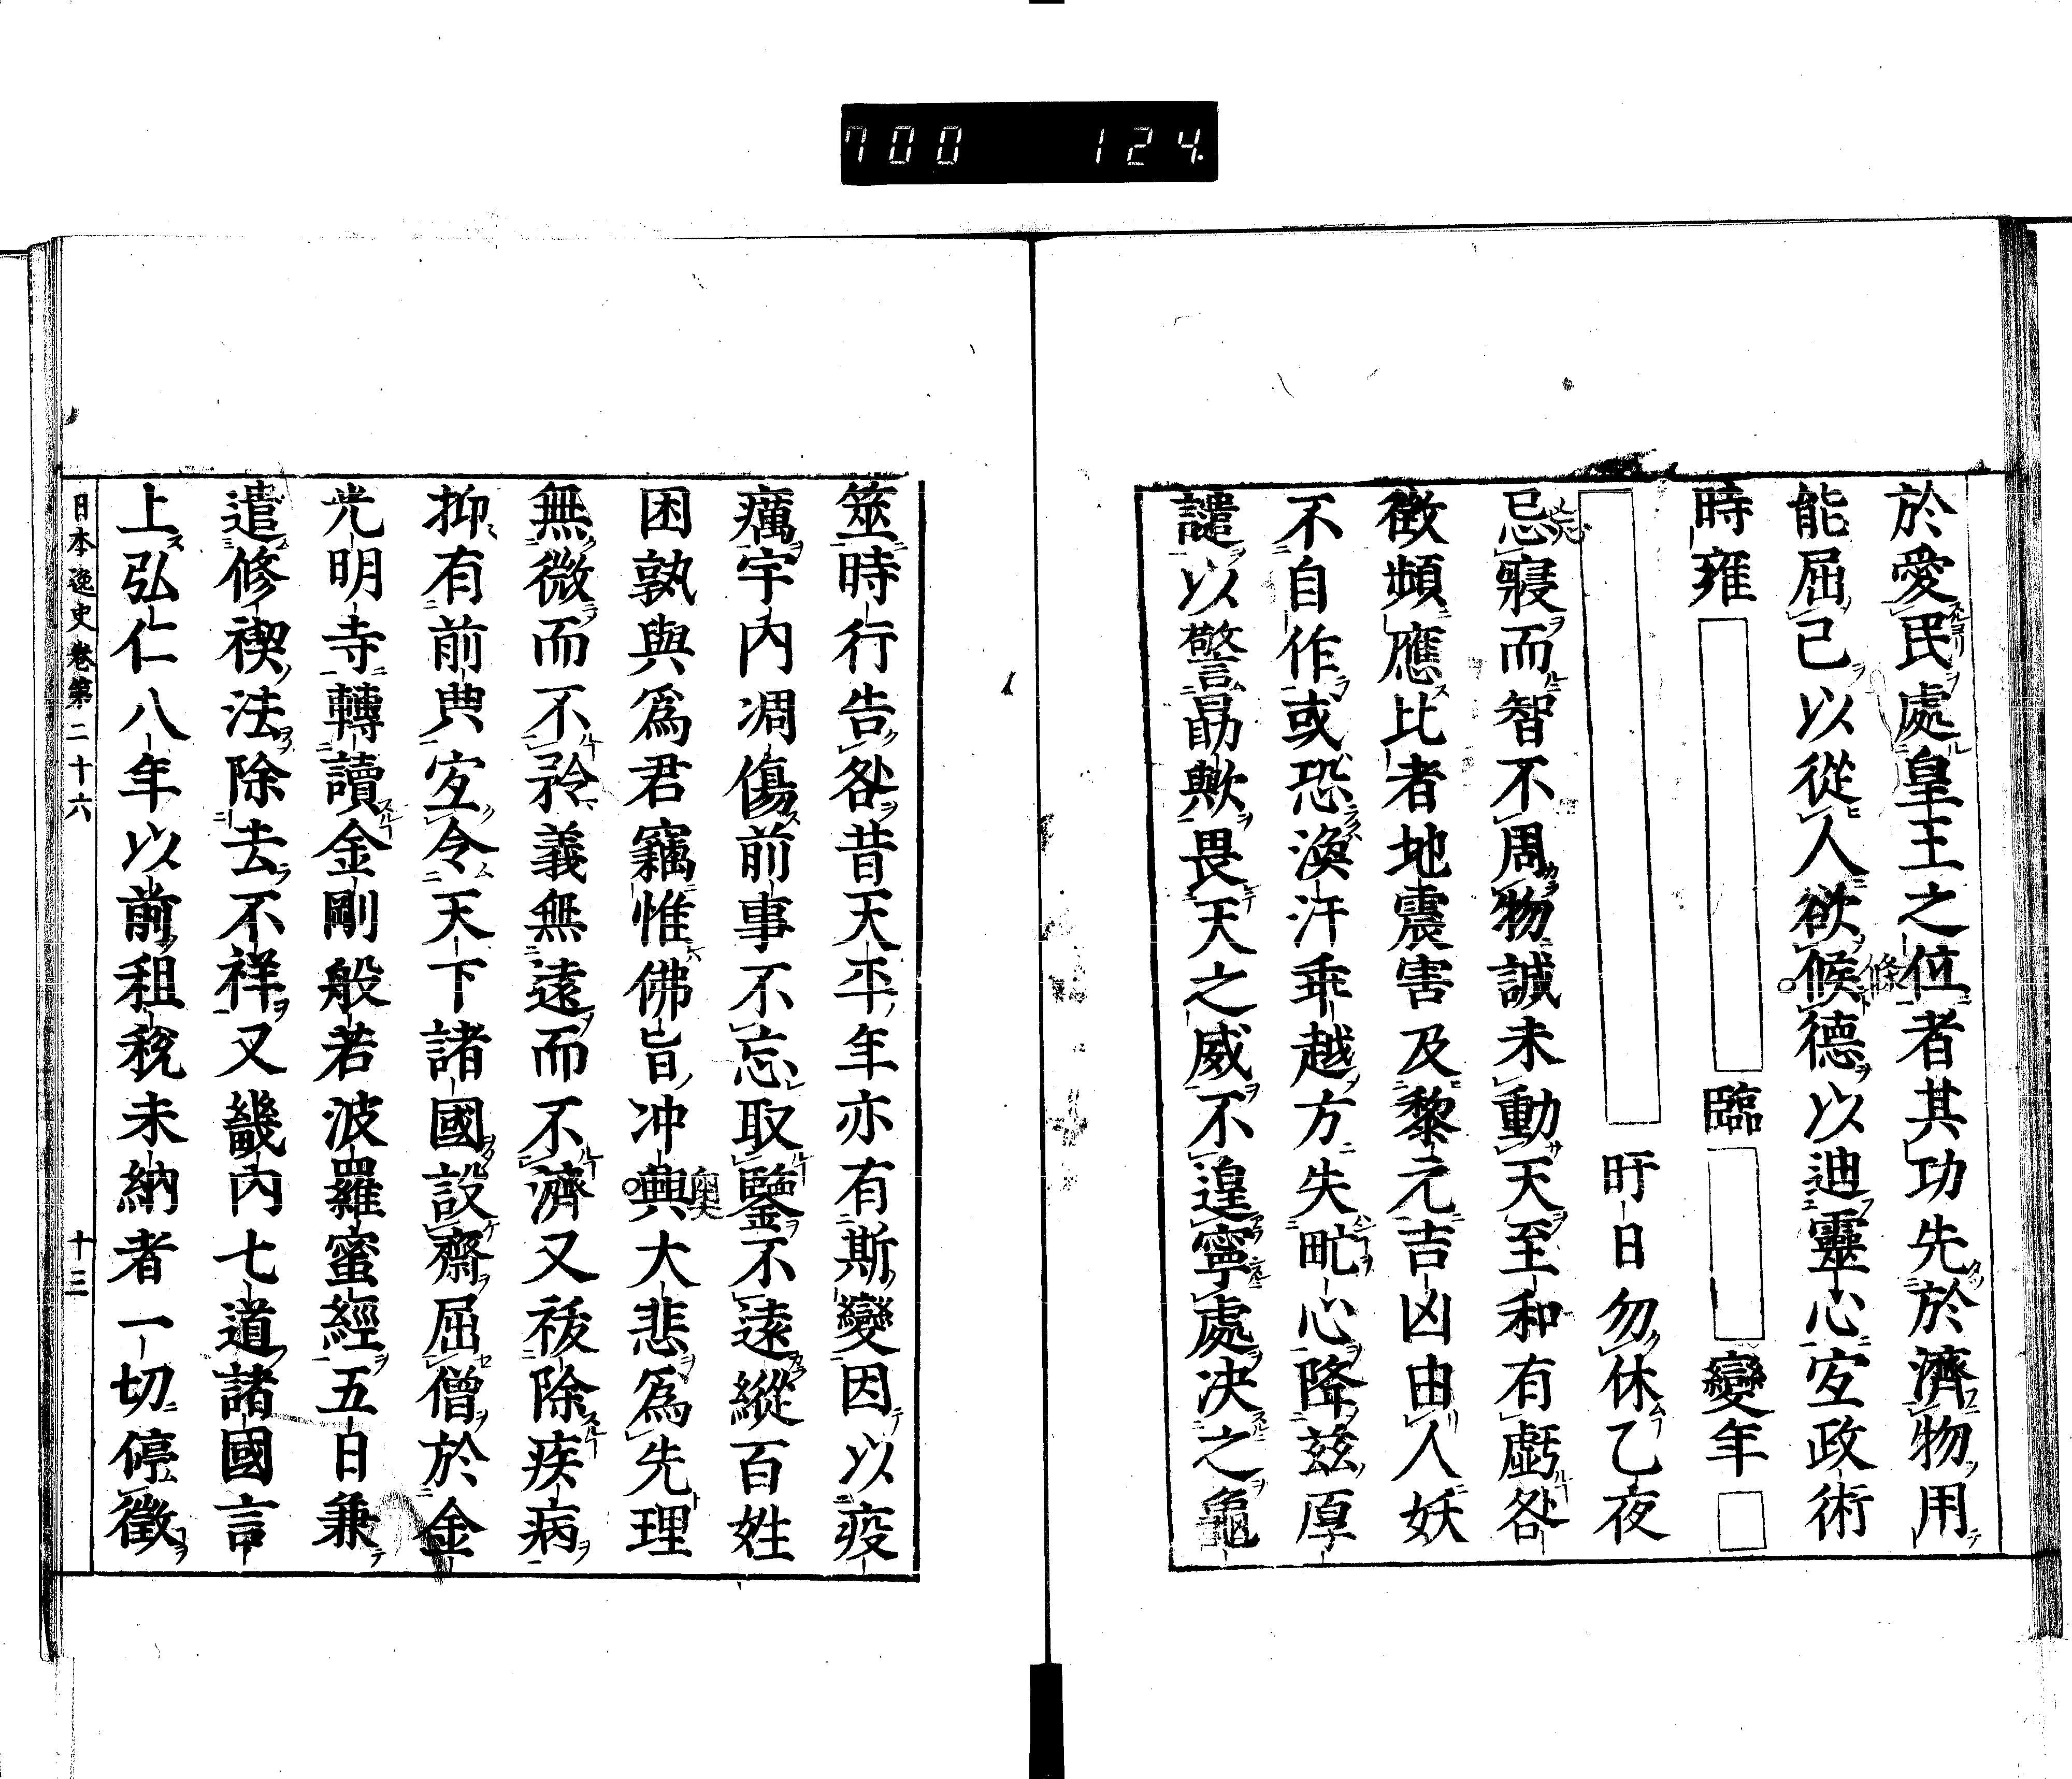 700 124
於愛民處皇王之位者其功先於濟物用
能屈己以從人欲候德以迪靈心宐政術
時雍 臨 變年
旰日勿休乙夜
忌寢而智不周物誠未動天至和有虧咎
徴頻應比者地震害及黎元吉凶由人妖
不自作或恐渙汗乖越方失甿心降茲厚
譴以警勗歟畏天之威不遑寧處决之龜
筮時行告咎昔天平年亦有斯變因以疫
癘宇内凋傷前事不忘取鑒不遠縱百姓
困孰與爲君竊惟佛旨冲典大悲爲先理
無微而不矜義無遠而不濟又祓除疾病
抑有前典宐令天下諸國設齋屈僧於金
光明寺轉讀金剛般若波羅蜜經五日兼
遣修禊法除去不祥又畿内七道諸國言
上弘仁八年以前租税未納者一切停徴
日本逸史卷第二十六 十三